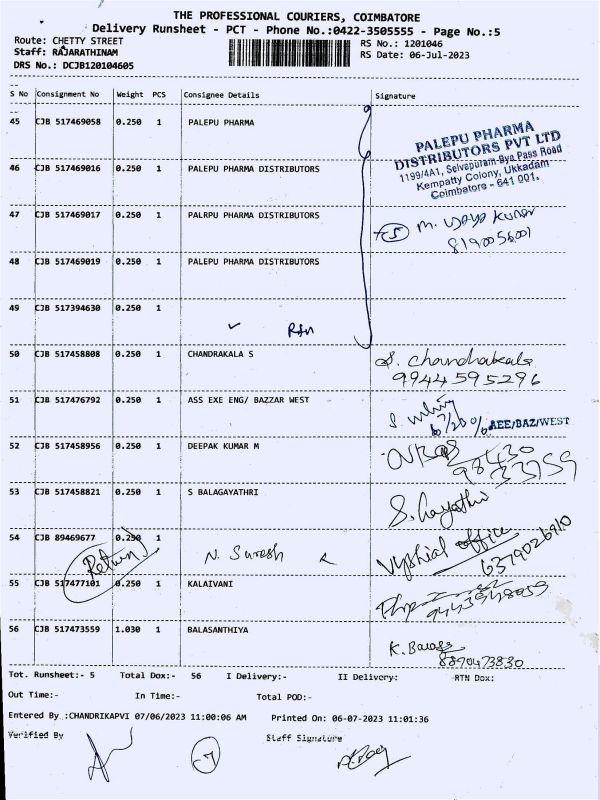 THE PROFESSIONAL COURIERS, COIMBATORE
Delivery Runsheet - PCT - Phone No.:0422-3505555 - Page No.:5
Route: CHETTY STREET RS No.: 1201046
Staff: RAJARATHINAM RS Date: 06-Jul-2023
DRS No.: DCJB120104605
S No Consignment No Weight PCS Consignee Details Signature
45 CJB 517469058 0.250 1 PALEPU PHARMA
PALEPU PHARMA
DISTRIBUTORS PVT LTD
1199/4A1, Selvapuram-Bye Pass Road
Kempatty Colony, Ukkadam
Coimbatore - 641 001.
46 CJB 517469016 0.250 1 PALEPU PHARMA DISTRIBUTORS
47 CJB 517469017 0.250 1 PALRPU PHARMA DISTRIBUTORS
M. Vijaya Kumar
8190056001
48 CJB 517469019 0.250 1 PALEPU PHARMA DISTRIBUTORS
49 CJB 517394630 0.250 1
50 CJB 517458808 0.250 1 CHANDRAKALA S
S. Chandrakala
9944595296
51 CJB 517476792 0.250 1 ASS EXE ENG/ BAZZAR WEST
AEE/BAZ/WEST
52 CJB 517458956 0.250 1 DEEPAK KUMAR M
98430
33759
53 CJB 517458821 0.250 1 S BALAGAYATHRI
S. Gayathri
54 CJB 89469677 0.250 1 N. Suresh
Return
office
6579026910
55 CJB 517477101 0.250 1 KALAIVANI
56 CJB 517473559 1.030 1 BALASANTHIYA
8890473830
Tot. Runsheet:- 5 Total Dox:- 56 I Delivery:- II Delivery: -RTN Dox:
Out Time:- In Time:- Total POD:-
Entered By :CHANDRIKAPVI 07/06/2023 11:00:06 AM Printed On: 06-07-2023 11:01:36
Verified By Staff Signature
7